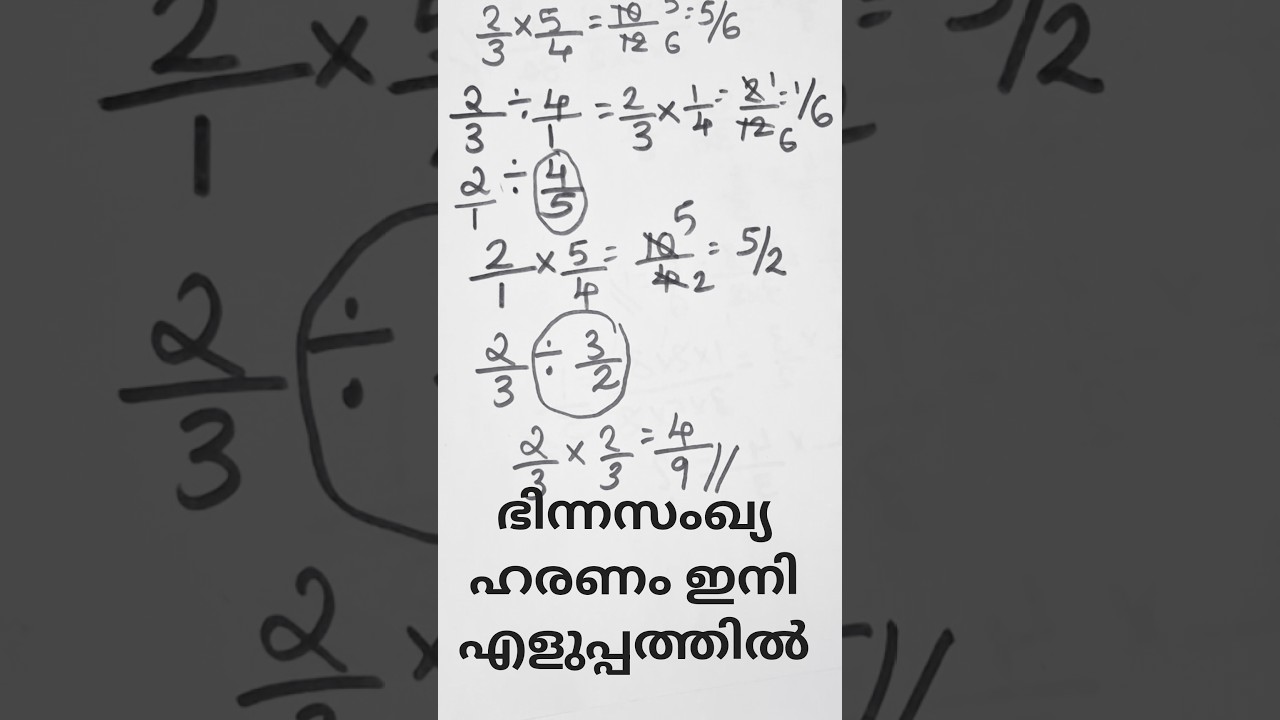 2/3 × 5/4 = 10/12 5/6 = 5/6
2/3 ÷ 4/1 = 2/3 × 1/4 = 2/12 1/6 = 1/6
2/1 ÷ 4/5
2/1 × 5/4 = 10/4 5/2 = 5/2
2/3 ÷ 3/2
2/3 × 2/3 = 4/9 //
ഭിന്നസംഖ്യ
ഹരണം ഇനി
എളുപ്പത്തിൽ